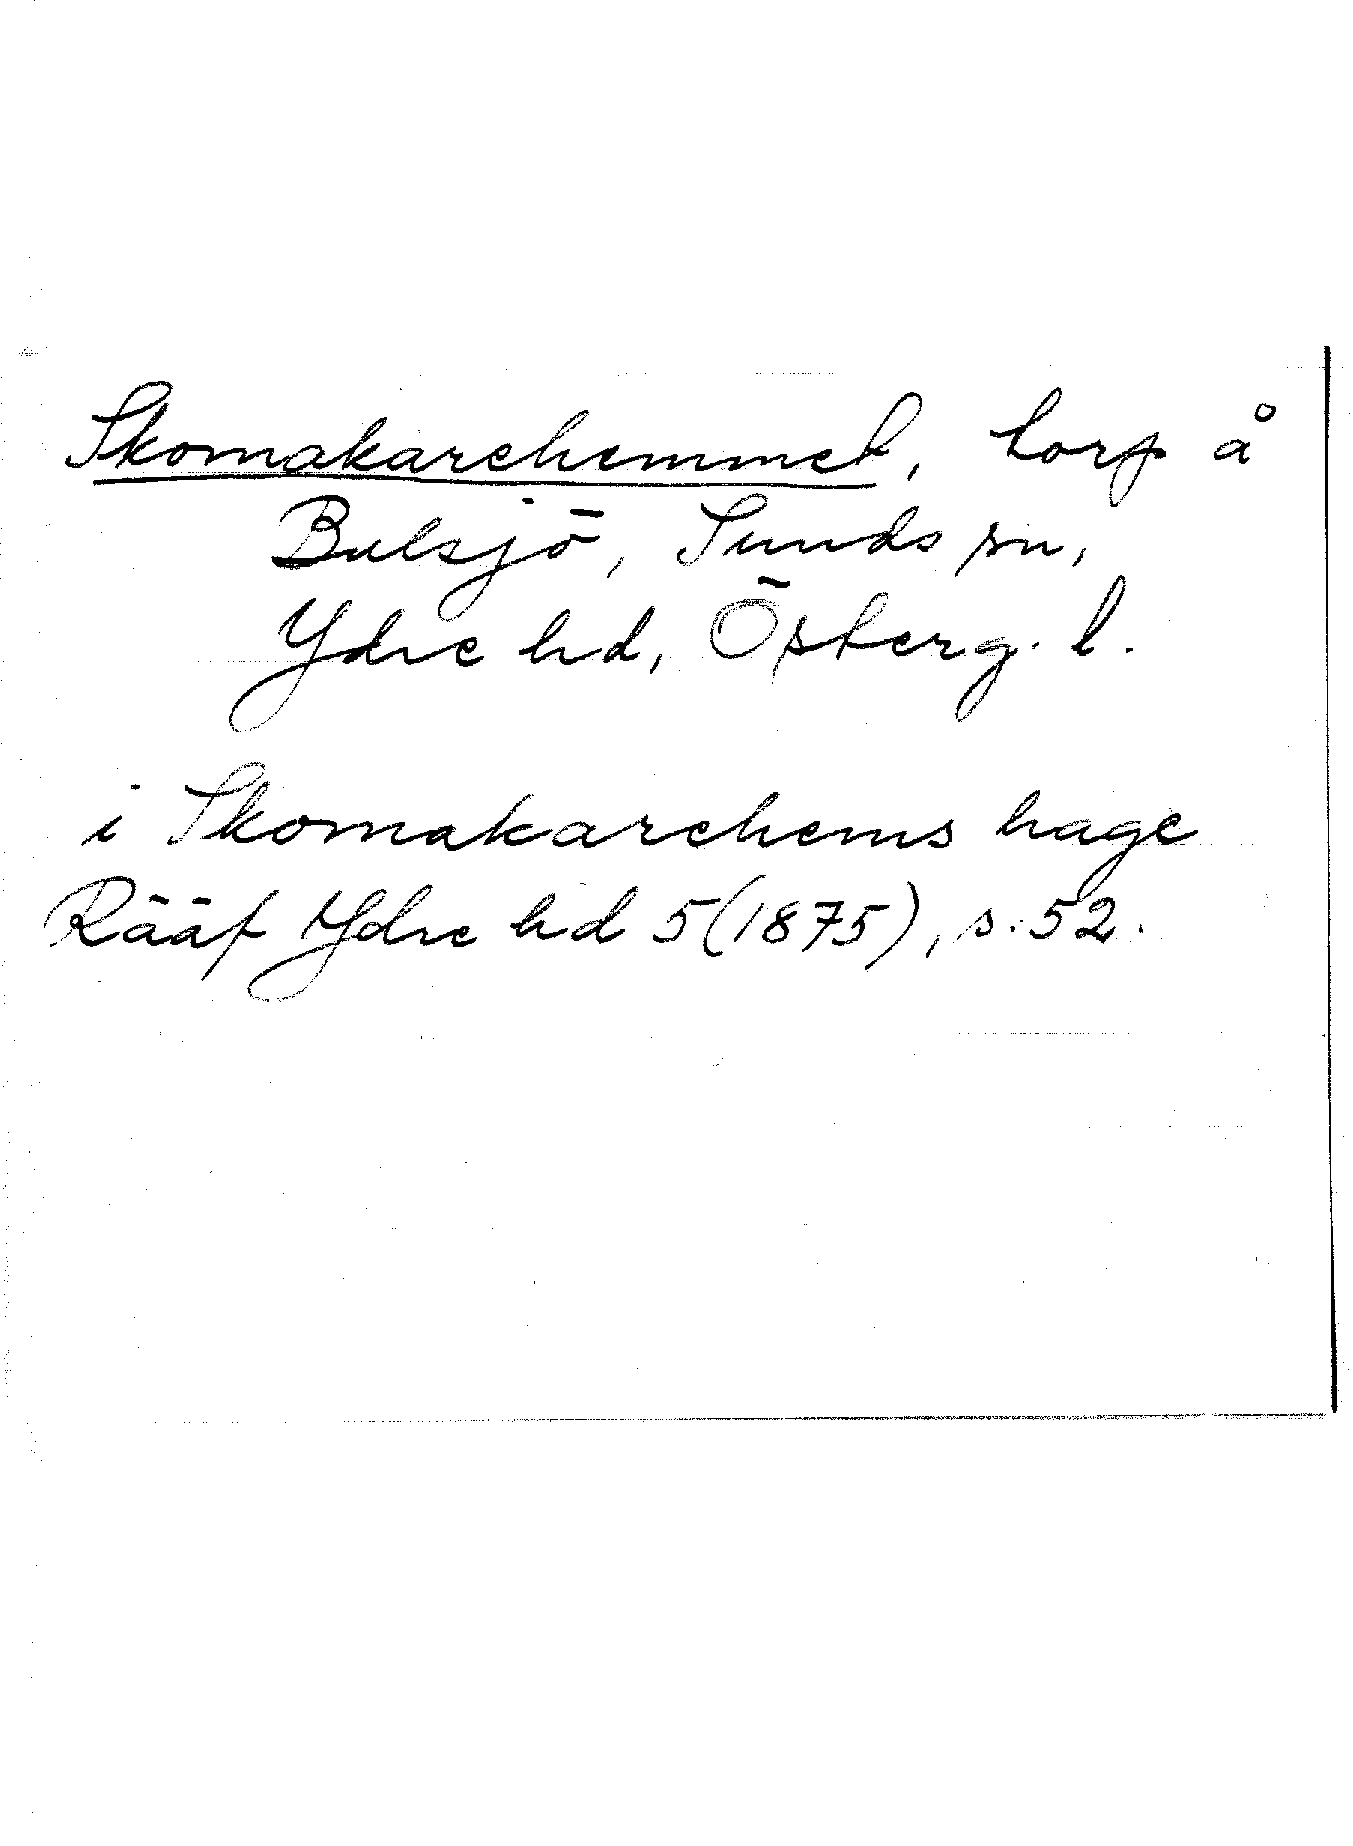 Skomakarehemmet, torp å
Bulsjö, Sunds sn,
Ydre hd, Österg. l.
i Skomakarehems hage
Rääf Ydre hd 5(1875), s. 52.